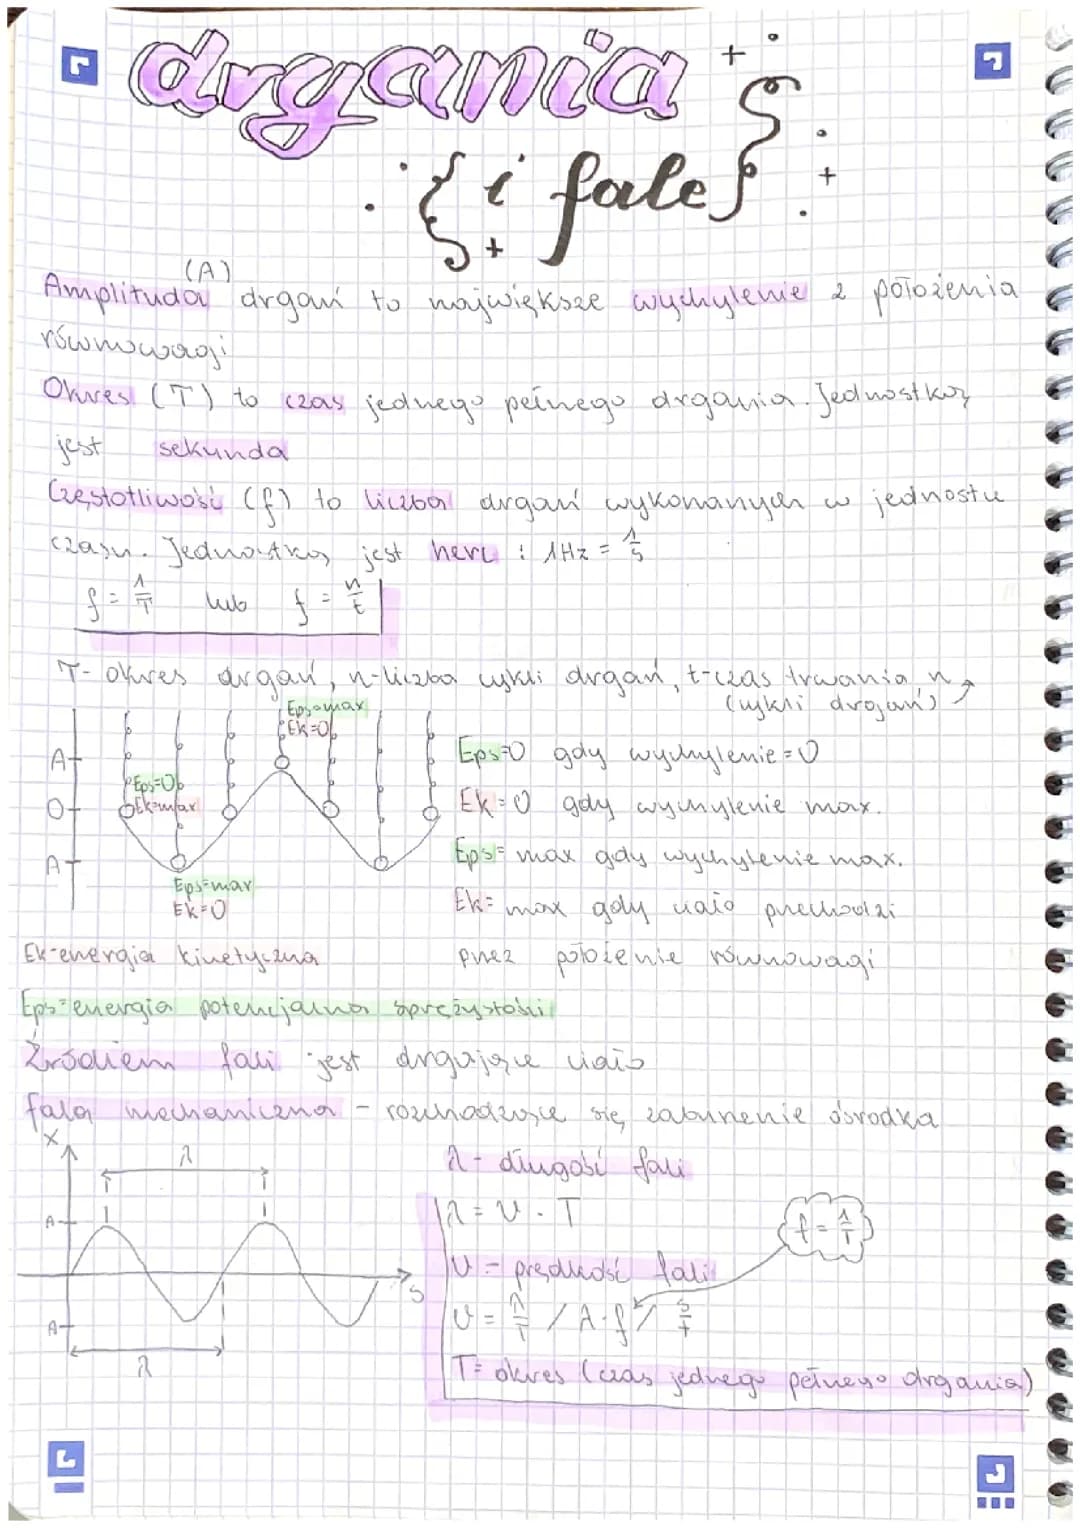 drgania
{i fale}
(A)
Amplituda drgań to największe wychylenie z położenia
równowagi
Okres (T) to czas jednego pełnego drgania. Jednostką
jest sekunda
Częstotliwość (f) to liczba drgań wykonanych w jednostce
czasu. Jednostką jest herc : 1Hz = 1/s
f = 1/T lub f = n/t
T- okres drgań, n-liczba cykli drgań, t-czas trwania n
(cykli drgań)
Eps=max
Ek=0
A
Eps=0
Ek=max
0
A
Eps=max
Ek=0
Eps=0 gdy wychylenie=0
Ek=0 gdy wychylenie max.
Eps= max gdy wychylenie max.
Ek= max gdy ciało przechodzi
przez położenie równowagi
Ek-energia kinetyczna
Eps=energia potencjalna sprężystości
Źródłem fali jest drgające ciało
fala mechaniczna - rozchodzące się zaburzenie ośrodka
X
λ
A
A
S
λ
λ- długość fali
λ = v · T
v - prędkość fali
v = λ/T / λ·f / s/t
f = 1/T
T= okres (czas jednego pełnego drgania)